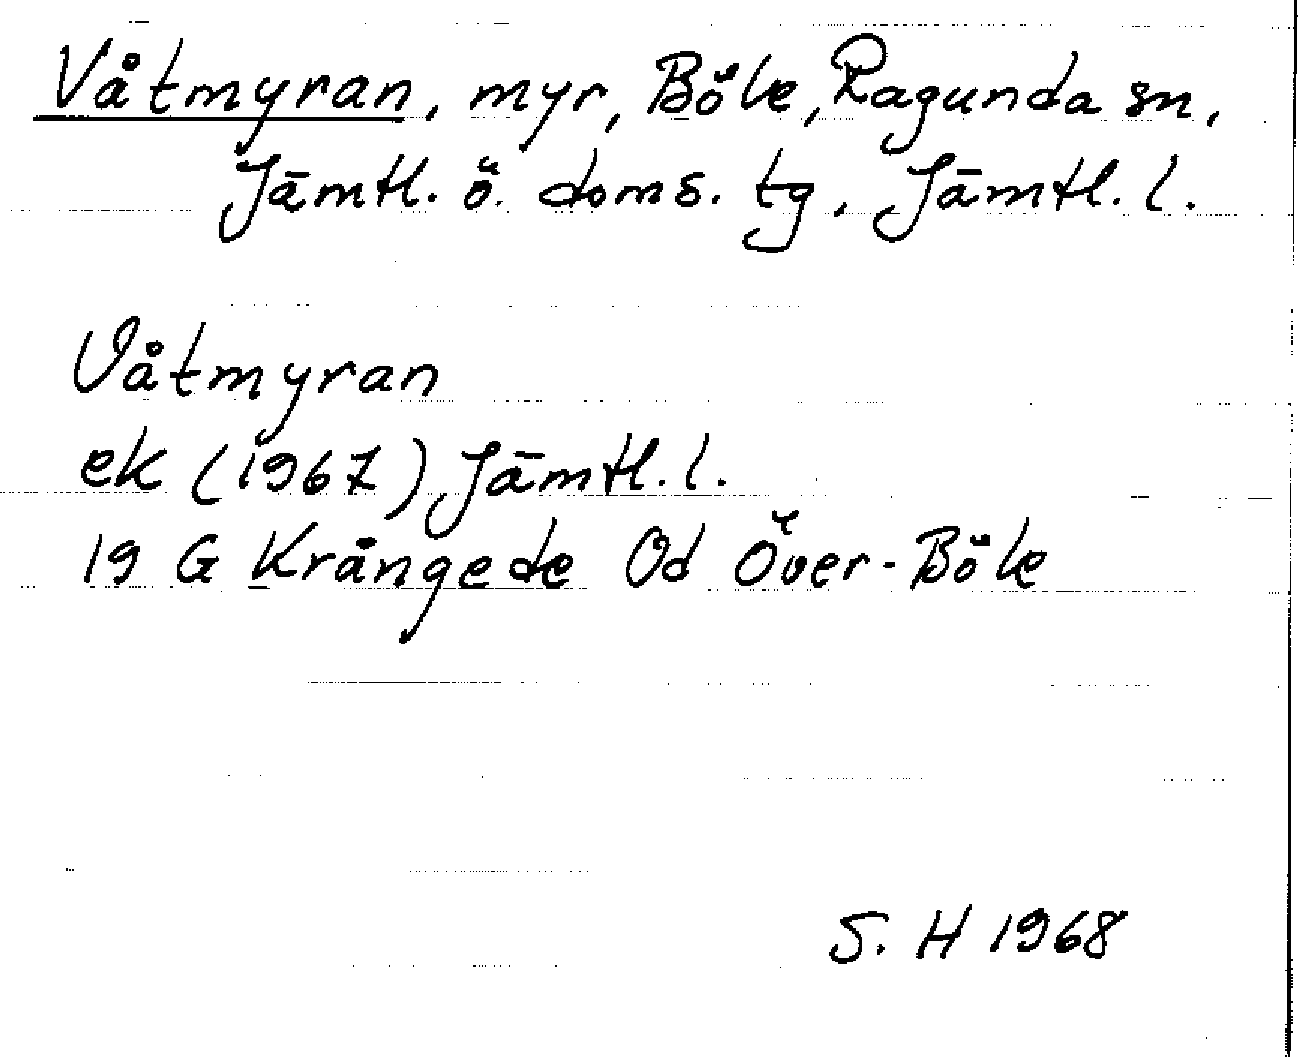 Våtmyran, myr, Böle, Ragunda sn,
Jämtl. ö. doms. tg, Jämtl. l.
Våtmyran
ek (1967) Jämtl. l.
19 G Krångede Od Över-Böle
S. H 1968